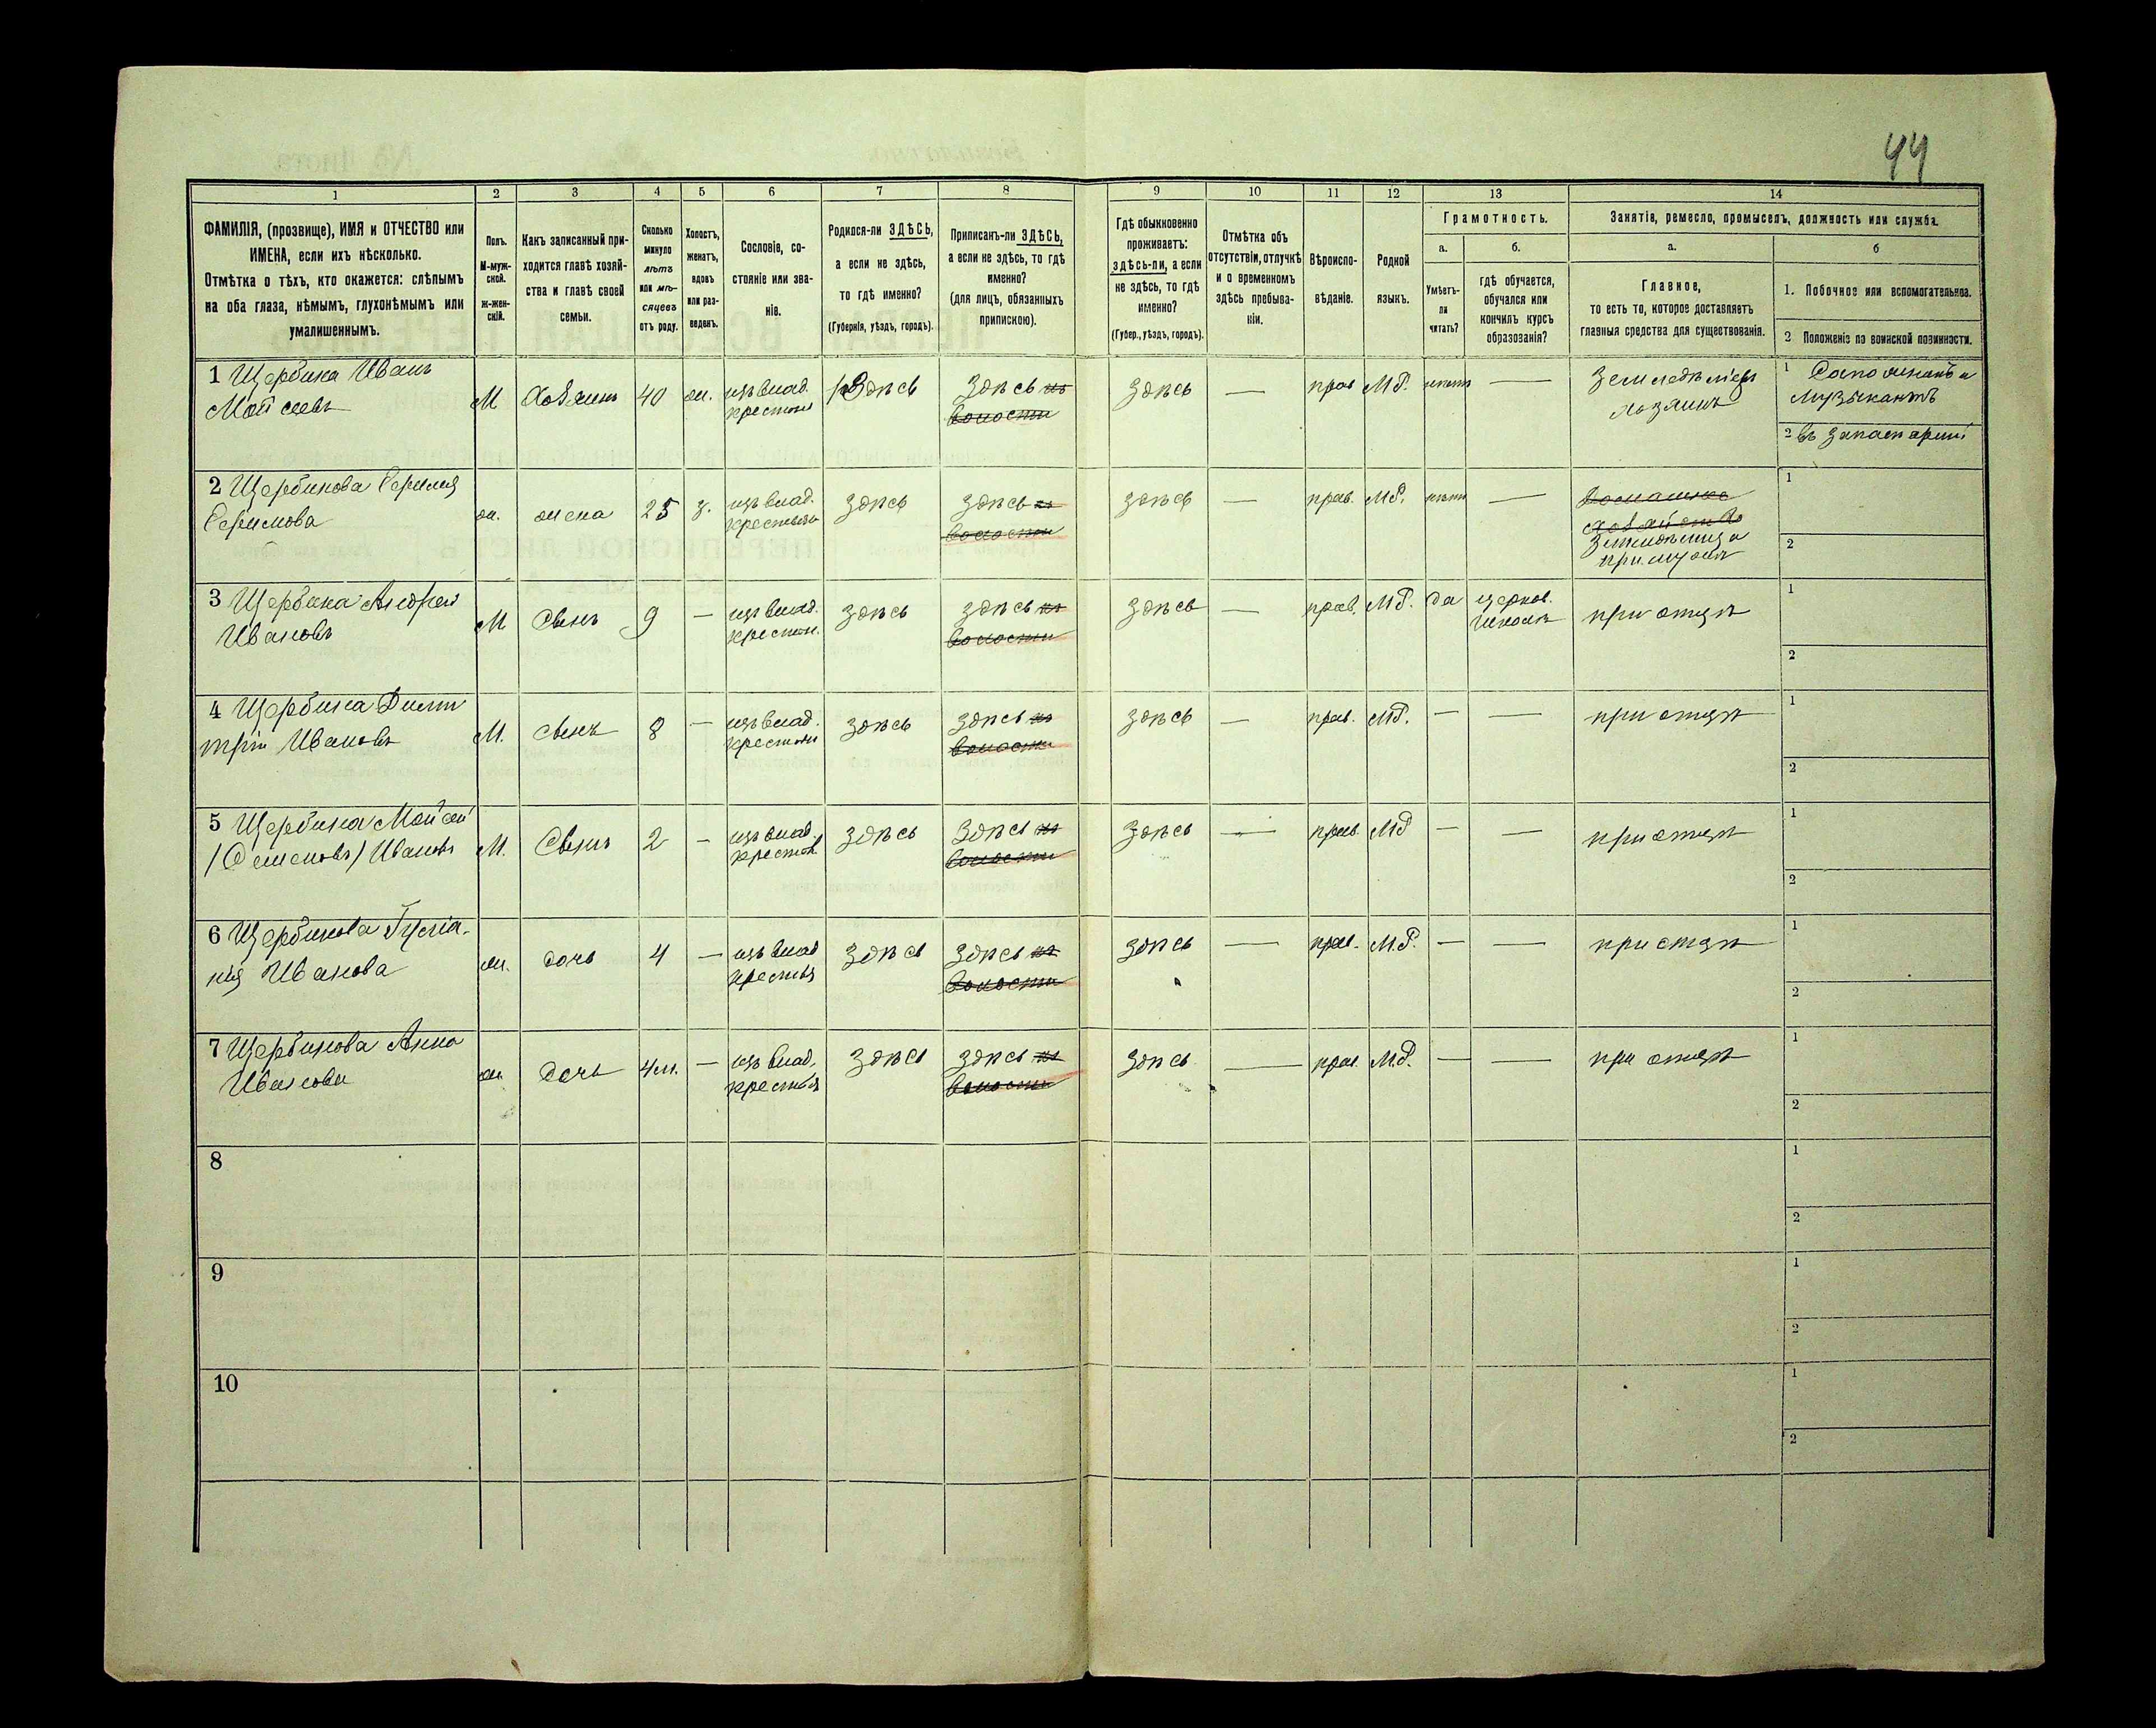 44
1
2
3
4
5
6
7
8
9
10
11
12
13
14
ФАМИЛІЯ, (прозвище), ИМЯ и ОТЧЕСТВО или
ИМЕНА, если ихъ нѣсколько.
Отмѣтка о тѣхъ, кто окажется: слѣпымъ
на оба глаза, нѣмымъ, глухонѣмымъ или
умалишеннымъ.
Полъ.
М-муж-
ской.
ж-жен-
скій.
Какъ записанный при-
ходится главѣ хозяй-
ства и главѣ своей
семьи.
Сколько
минуло
лѣтъ
или мѣ-
сяцевъ
отъ роду.
Холостъ,
женатъ,
вдовъ
или раз-
веденъ.
Сословіе, со-
стояніе или зва-
ніе.
Родился-ли ЗДѢСЬ,
а если не здѣсь,
то гдѣ именно?
(Губернія, уѣздъ, городъ).
Приписанъ-ли ЗДѢСЬ,
а если не здѣсь, то гдѣ
именно?
(для лицъ, обязанныхъ
припискою).
Гдѣ обыкновенно
проживаетъ:
здѣсь-ли, а если
не здѣсь, то гдѣ
именно?
(Губер., уѣздъ, городъ).
Отмѣтка объ
отсутствіи, отлучкѣ
и о временномъ
здѣсь пребыва-
ніи.
Вѣроиспо-
вѣданіе.
Родной
языкъ.
Грамотность.
а.
Умѣетъ-
ли
читать?
б.
гдѣ обучается,
обучался или
кончилъ курсъ
образованія?
Занятіе, ремесло, промыселъ, должность или служба.
а.
Главное,
то есть то, которое доставляетъ
главныя средства для существованія.
б
1. Побочное или вспомогательное.
2 Положеніе по воинской повинности.
1 Щербина Иванъ
Мойсеевъ
М
хозяинъ
40
ж.
изъ влад.
крестьян
Здѣсь
Здѣсь въ
волости
Здѣсь
—
прав
М.Р.
нѣтъ
—
Земледѣлецъ
хозяинъ
1 Сапожникъ и
музыкантъ
2 въ запасѣ арміи
2 Щербинова
ж.
жена
25
з.
изъ влад.
крестьян
здѣсь
здѣсь въ
волости
здѣсь
—
прав.
М.Р.
нѣтъ
—
Домашнее
хозяйство
при мужѣ
1
2
3 Щербина Андрей
Ивановъ
М
Сынъ
9
—
изъ влад.
крестьян.
здѣсь
здѣсь въ
волости
здѣсь
—
прав.
М.Р.
да
церков.
школѣ
при отцѣ
1
2
4 Щербина Дими
трій Ивановъ
М.
Сынъ
8
—
изъ влад.
крестьян
здѣсь
здѣсь въ
волости
здѣсь
—
прав.
М.Р.
—
—
при отцѣ
1
2
5 Щербина Мойсей
/Семеновъ/ Ивановъ
М.
Сынъ
2
—
изъ влад.
крестьян
здѣсь
здѣсь въ
волости
здѣсь
—
прав.
М.Р
—
—
при отцѣ
1
2
6 Щербинова
Иванова
ж.
дочь
4
—
изъ влад
крестья
здѣсь
здѣсь въ
волости
здѣсь
—
прав.
М.Р.
—
—
при отцѣ
1
2
7 Щербинова Анна
Иванова
ж.
дочь
4 м.
—
изъ влад.
крестья
здѣсь
здѣсь въ
волости
здѣсь
—
прав.
М.Р.
—
—
при отцѣ
1
2
8
1
2
9
1
2
10
1
2